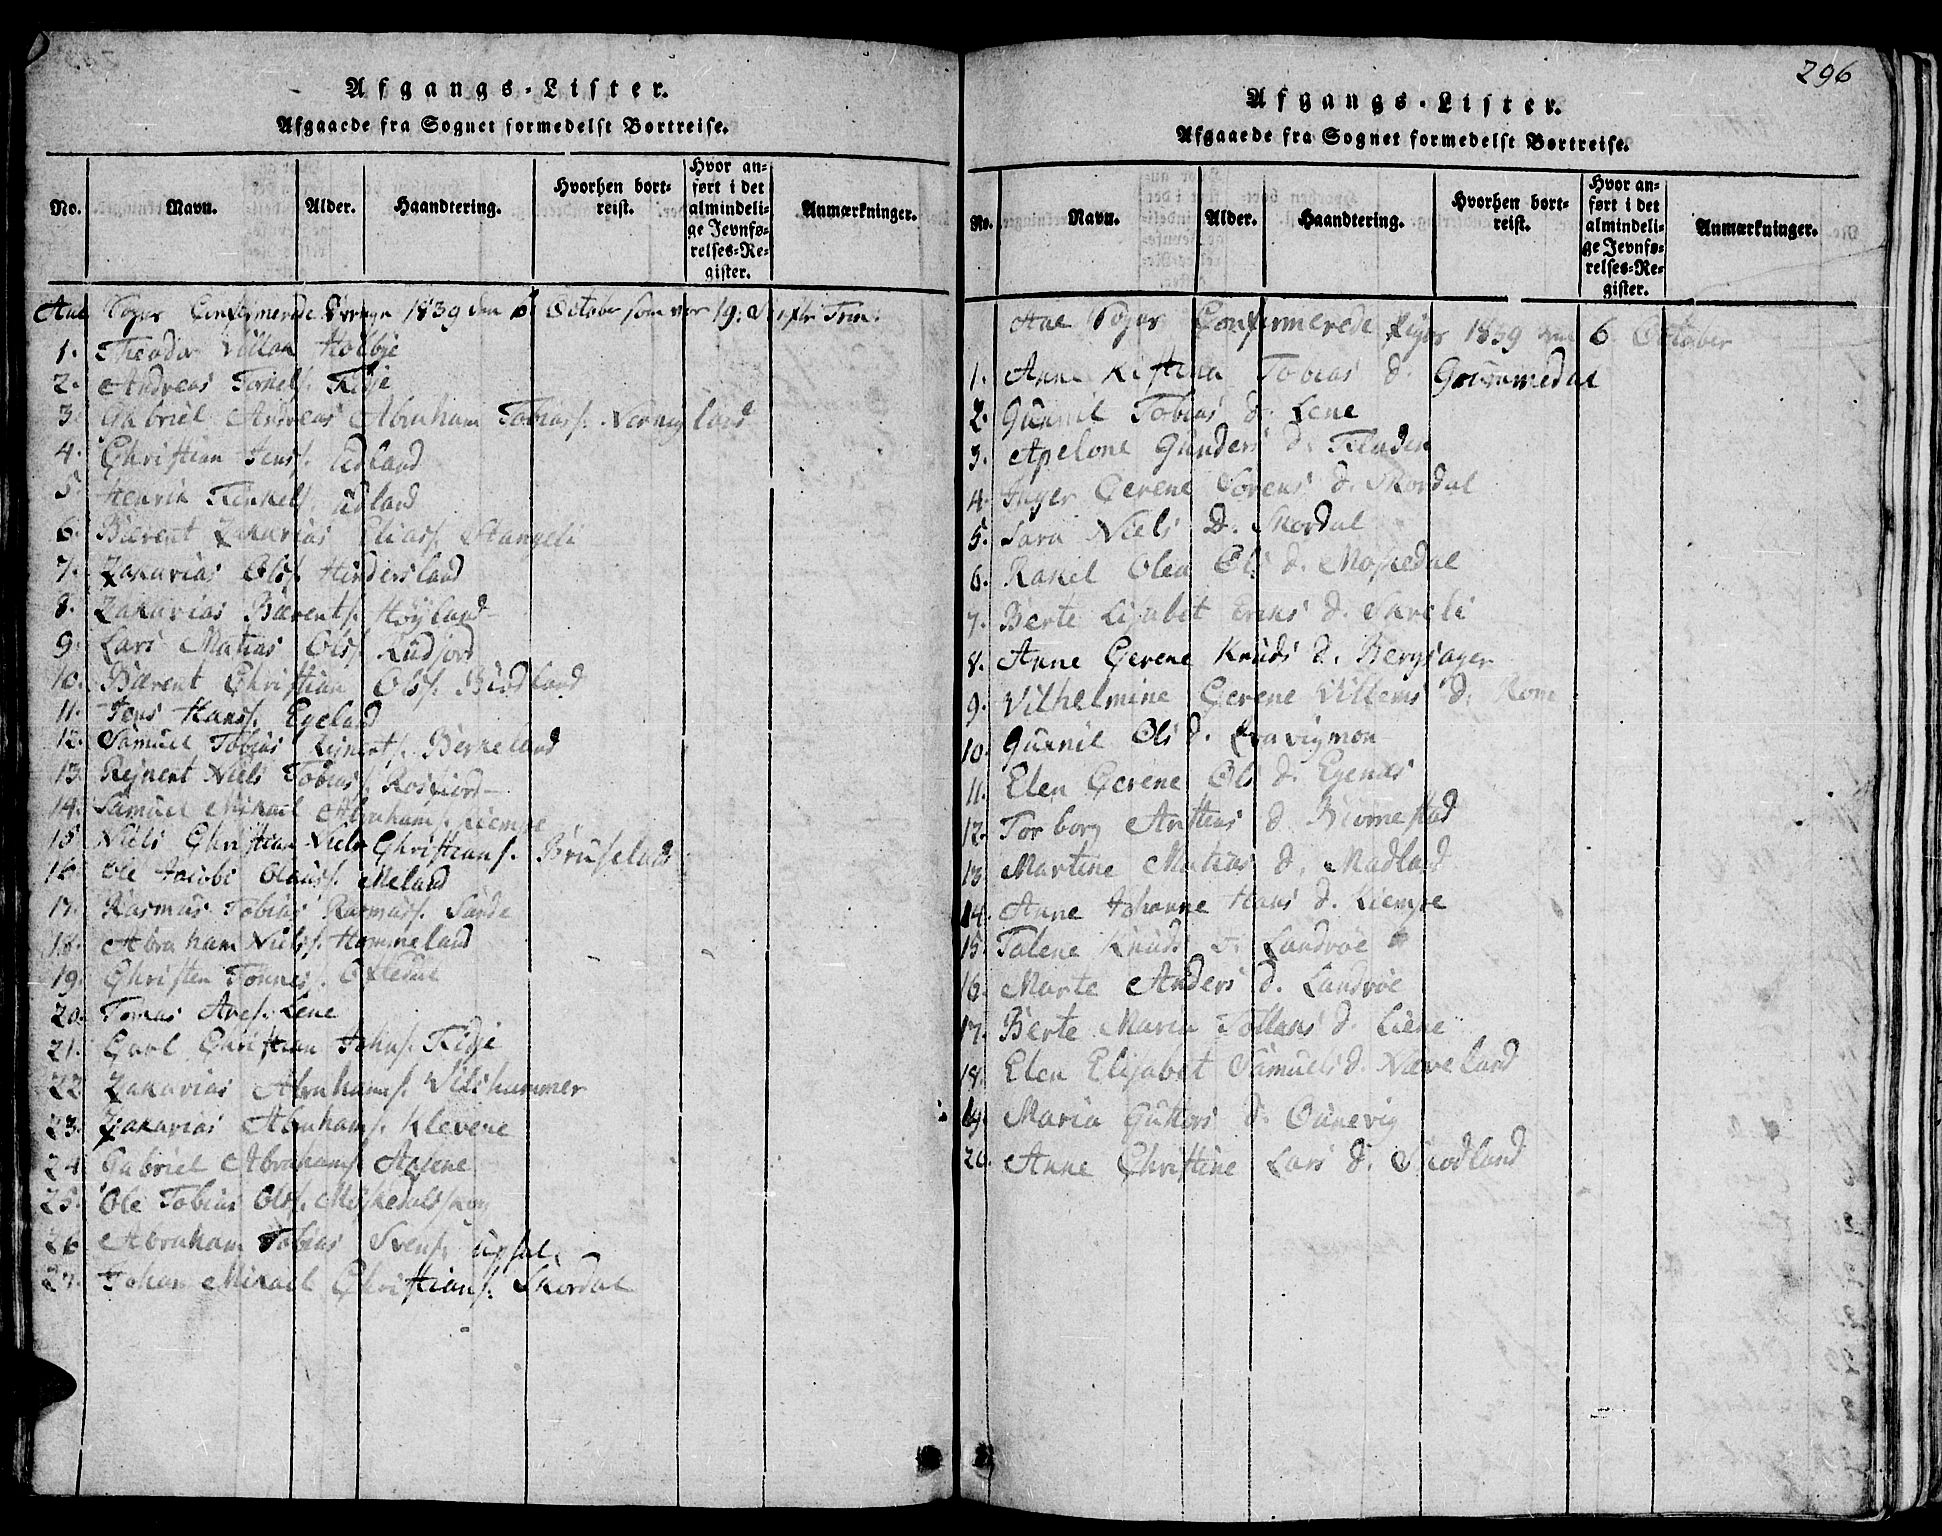 Afgangs-Lister.
Afgaaede fra Sognet formedelst Bortreise.
No.
Navn.
Alder.
Haandtering.
Hvorhen bort-
reist.
Hvor an-
ført i det
almindeli-
ge Jevnfø-
relses-Re-
gister.
Anmærkninger.
Aae Sogns Confirmerede Drenge 1839 den 6 October som var 19. S. efter Trin.
1. Theodor Villon Holbye
2. Andreas Tonnels. Kidje
3. Gabriel Andreas Abraham Tobiass.
4. Christian Jenss. Ædland
5. Henrik Tennels. Ædland
6. Bærent Zakarias Eliass. Stangeli
7. Zakarias Olss. Hindersland
8. Zakarias Bærents. Høyland
9. Lars Matias Olss. Rudjord
10. Bærent Christian Olss. Birkland
11. Jens Hanss. Egeland
12. Samuel Tobias Rejnerts. Berkeland
13. Rejnert Niels Tobiass. Rosfiord
14. Samuel Mikael Abrahams. Kiempe
15. Niels Christian Niels Christians. Bruseland
16. Ole Jacobs Olaus. Meland
17. Rasmus Tobias Rasmuss. Sande
18. Abraham Nielss. Hommeland
19. Christen Tønness. Oftedal
20. Tomas Ares. Lene
21. Carl Christian Johns. Kidje
22. Zakarias Abrahams. Vilshammer
23. Zakarias Abrahams. Klevene
24. Gabriel Abrahams. Aalene
25. Ole Tobias Olss. Møskedalsskog
26. Abraham Tobias Svens. Upsal
27. Johan Mikael Christians. Skordal
296
Afgangs-Lister.
Afgaaede fra Sognet formedelst Bortreise.
No.
Navn.
Alder.
Haandtering.
Hvorhen bort-
reist.
Hvor an-
ført i det
almindeli-
ge Jevnfø-
relses-Re-
gister.
Anmærkninger.
Aae Sogns Confirmerede Piger 1839 den 6 October
1. Anne Kistina Tobias d. Grummedal
2. Gunnil Tobias d. Lene
3. Apelone Gunders d. Fladen
4. Inger Gerene Sørens d. Skordal
5. Sara Niels D. Skordal
6. Rakel Olea Ols d. Moskedal
7. Berte Lisabet Eriks d. Skreli
8. Anne Gerene Knuds d. Bergsager
9. Vilhelmine Gerene Villems d. Rom
10. Gunnil Ols d. Kravigmon
11. Elen Gerene Ols d. Egenes
12. Torborg Aristens d. Biørnestad
13. Martine Matias d. Madland
14. Anne Johanne Hans d. Kiempe
15. Talene Knuds d. Landrøe
16. Marte Anders d. Landrøe
17. Berte Maria Tollaks d. Liene
18. Elen Elisabet Samuels d. Næveland
19. Maria Guttors d. Ounevig
20. Anne Christine Lars d. Skodland